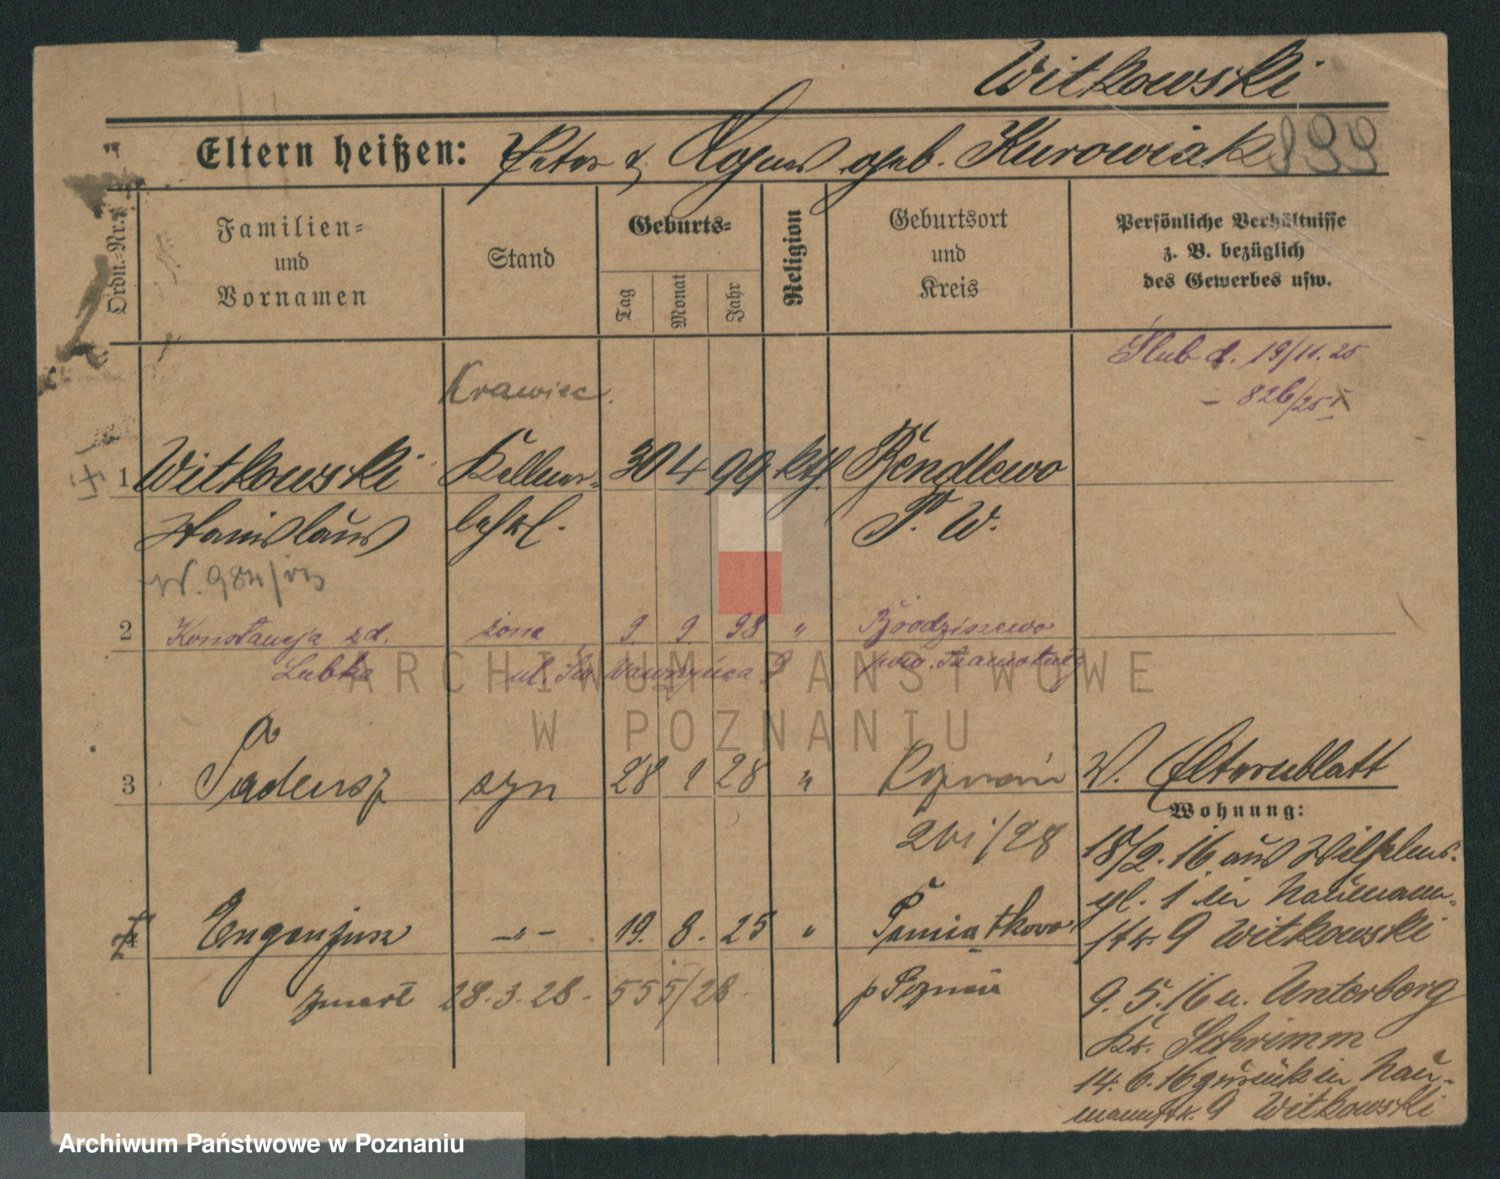 Witkowski
Eltern heißen: Peter & geb. Kurowiak
Ordn.-Nr.
Familien-
und
Vornamen
Stand
Geburts-
Tag
Monat
Jahr
Religion
Geburtsort
und
Kreis
Persönliche Verhältnisse
z. B. bezüglich
des Gewerbes usw.
Ślub d. 19/11.25
– 826/25
Krawiec.
1 Witkowski Kellner- 30 4 99 kth. Bendlewo
Stanislaus lehrl. P. W.
W. 984/
2 Konstancja zd. żona 9 9 98 " Brodziszewo
Lubka ul. Św. Wawrzyńca 9 pow. Szamotuły
3 Tadeusz syn 28 1 28 " Poznań
261/28
W. Elternblatt
Wohnung:
18/2.16 aus Wilhelms-
pl. 1 in Naumann-
str 9 Witkowski
4 Eugenjusz –"– 19. 8. 25 " Pamiątkowo
zmarł 28.3.28 - 555/28 p Poznań
9.5.16 n. Unterberg
Kr. Schrimm
14.6.16 zurück in Nau-
mannstr. 9 Witkowski
ARCHIWUM PAŃSTWOWE
W POZNANIU
Archiwum Państwowe w Poznaniu